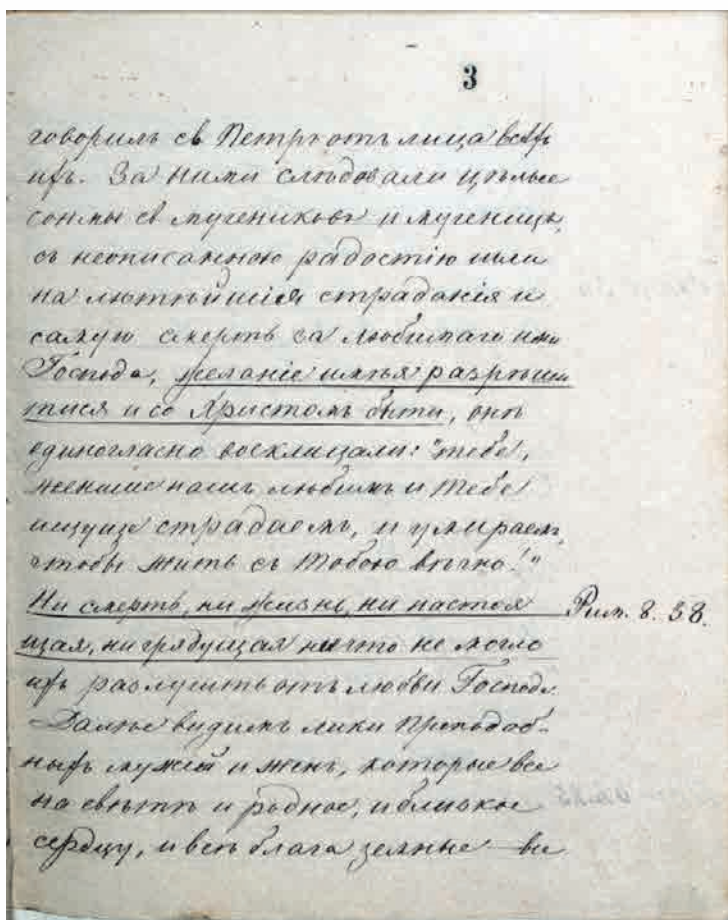 3
говорилъ св Петръ отъ лица всѣхъ
ихъ. За ними слѣдовали цѣлые
сонмы св мучениковъ и мученицъ,
съ неописанною радостію шли
на лютѣйшія страданія и
самую смерть за любимаго ими
Господа, желаніе имѣя разрѣши
тися и со Христомъ быти, онѣ
единогласно восклицали: "тебе,
женише нашъ любимъ и Тебе
ищуще страдаемъ, и умираемъ,
чтобы жить съ Тобою вѣчно!"
Ни смерть, ни жизнь, ни настоя Рим. 8. 38.
щая, ни грядущая ничто не могло
ихъ разлучить отъ любви Господа.
Далѣе видимъ лики Преподоб-
ныхъ мужей и женъ, которые все
на свѣтѣ и родное, и близкое
сердцу, и всѣ блага земные